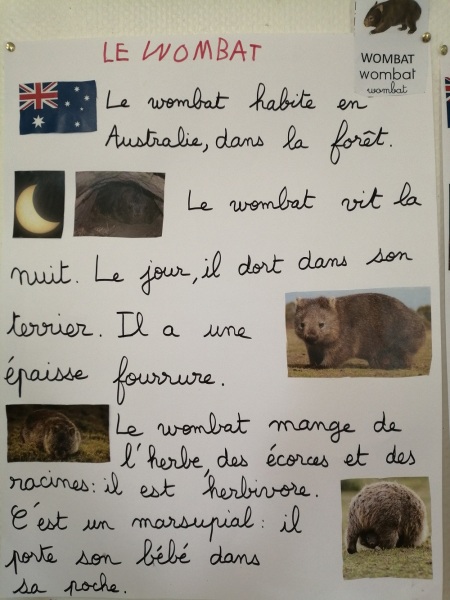 LE WOMBAT
WOMBAT
wombat
wombat
Le wombat habite en
Australie, dans la forêt.
Le wombat vit la
nuit. Le jour, il dort dans son
terrier. Il a une
épaisse fourrure.
Le wombat mange de
l'herbe, des écorces et des
racines: il est herbivore.
C'est un marsupial: il
porte son bébé dans
sa poche.